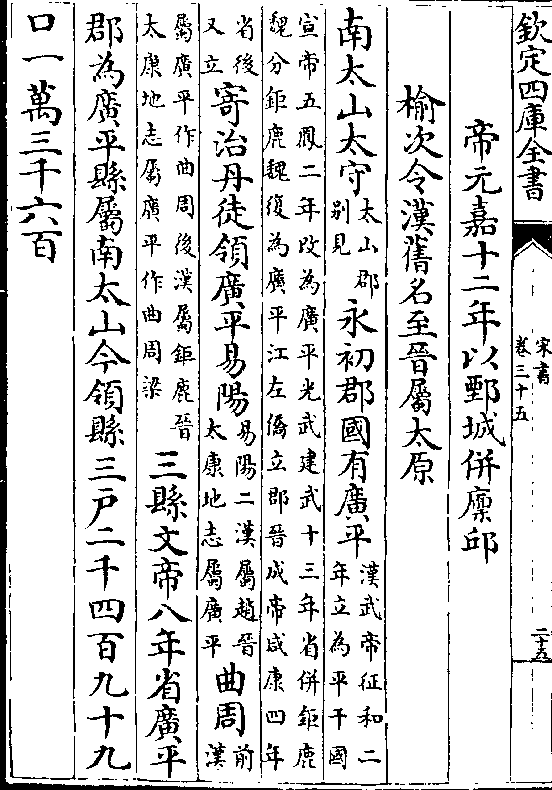 欽定四庫全書
宋書
卷三十五
二十五
帝元嘉十二年以鄄城併廩邱
榆次令漢舊名至晉屬太原
南太山太守太山郡别見永初郡國有廣平漢武帝征和二年立為平干國
宣帝五鳳二年改為廣平光武建武十三年省併鉅鹿
魏分鉅鹿魏復為廣平江左僑立郡晉成帝咸康四年
省後又立寄治丹徒領廣平易陽易陽二漢屬趙晉太康地志屬廣平曲周前漢
屬廣平作曲周後漢屬鉅鹿晉太康地志屬廣平作曲周梁三縣文帝八年省廣平
郡為廣平縣屬南太山今領縣三戸二千四百九十九
口一萬三千六百